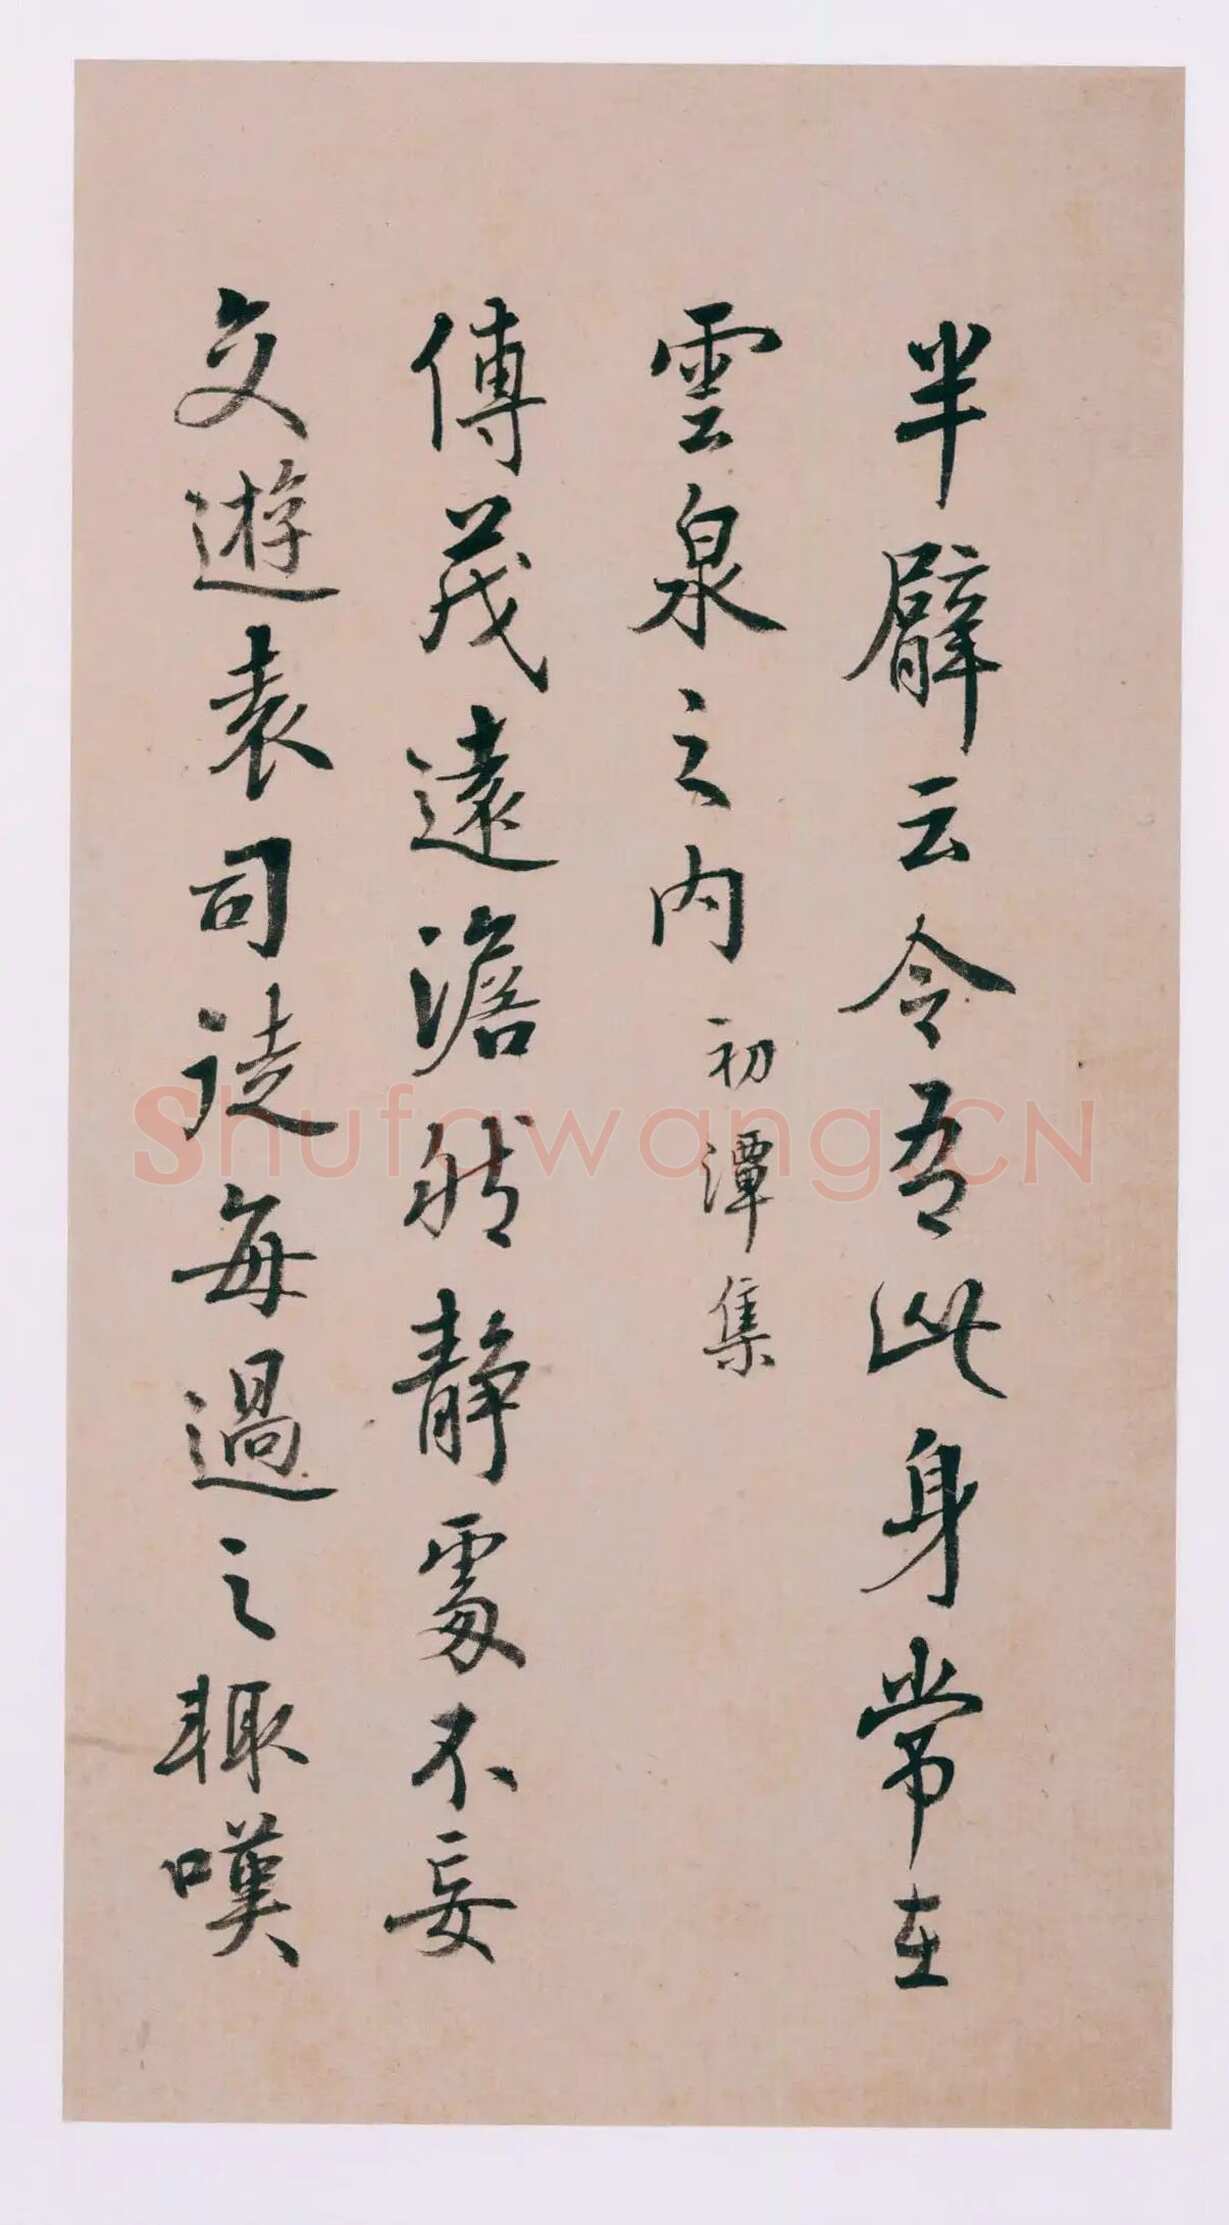 半臂云令吾此身常在
雲泉之内 初潭集
傅茂遠澹然靜處不妄
交遊袁司徒每過之輒嘆
Shufawang.CN